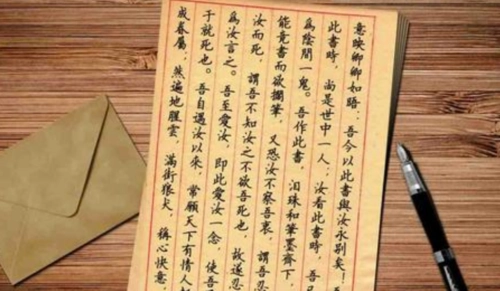 意映卿卿如晤：吾今以此書與汝永別矣！吾
此書時，尚是世中一人；汝看此書時，吾已
為陰間一鬼。吾作此書，淚珠和筆墨齊下，
能竟書而欲擱筆，又恐汝不察吾衷，謂吾忍
汝而死，謂吾不知汝之不欲吾死也，故遂忍
為汝言之。吾至愛汝，即此愛汝一念，使吾
于就死也。吾自遇汝以來，常願天下有情人
成眷屬，然遍地腥雲，滿街狼犬，稱心快意